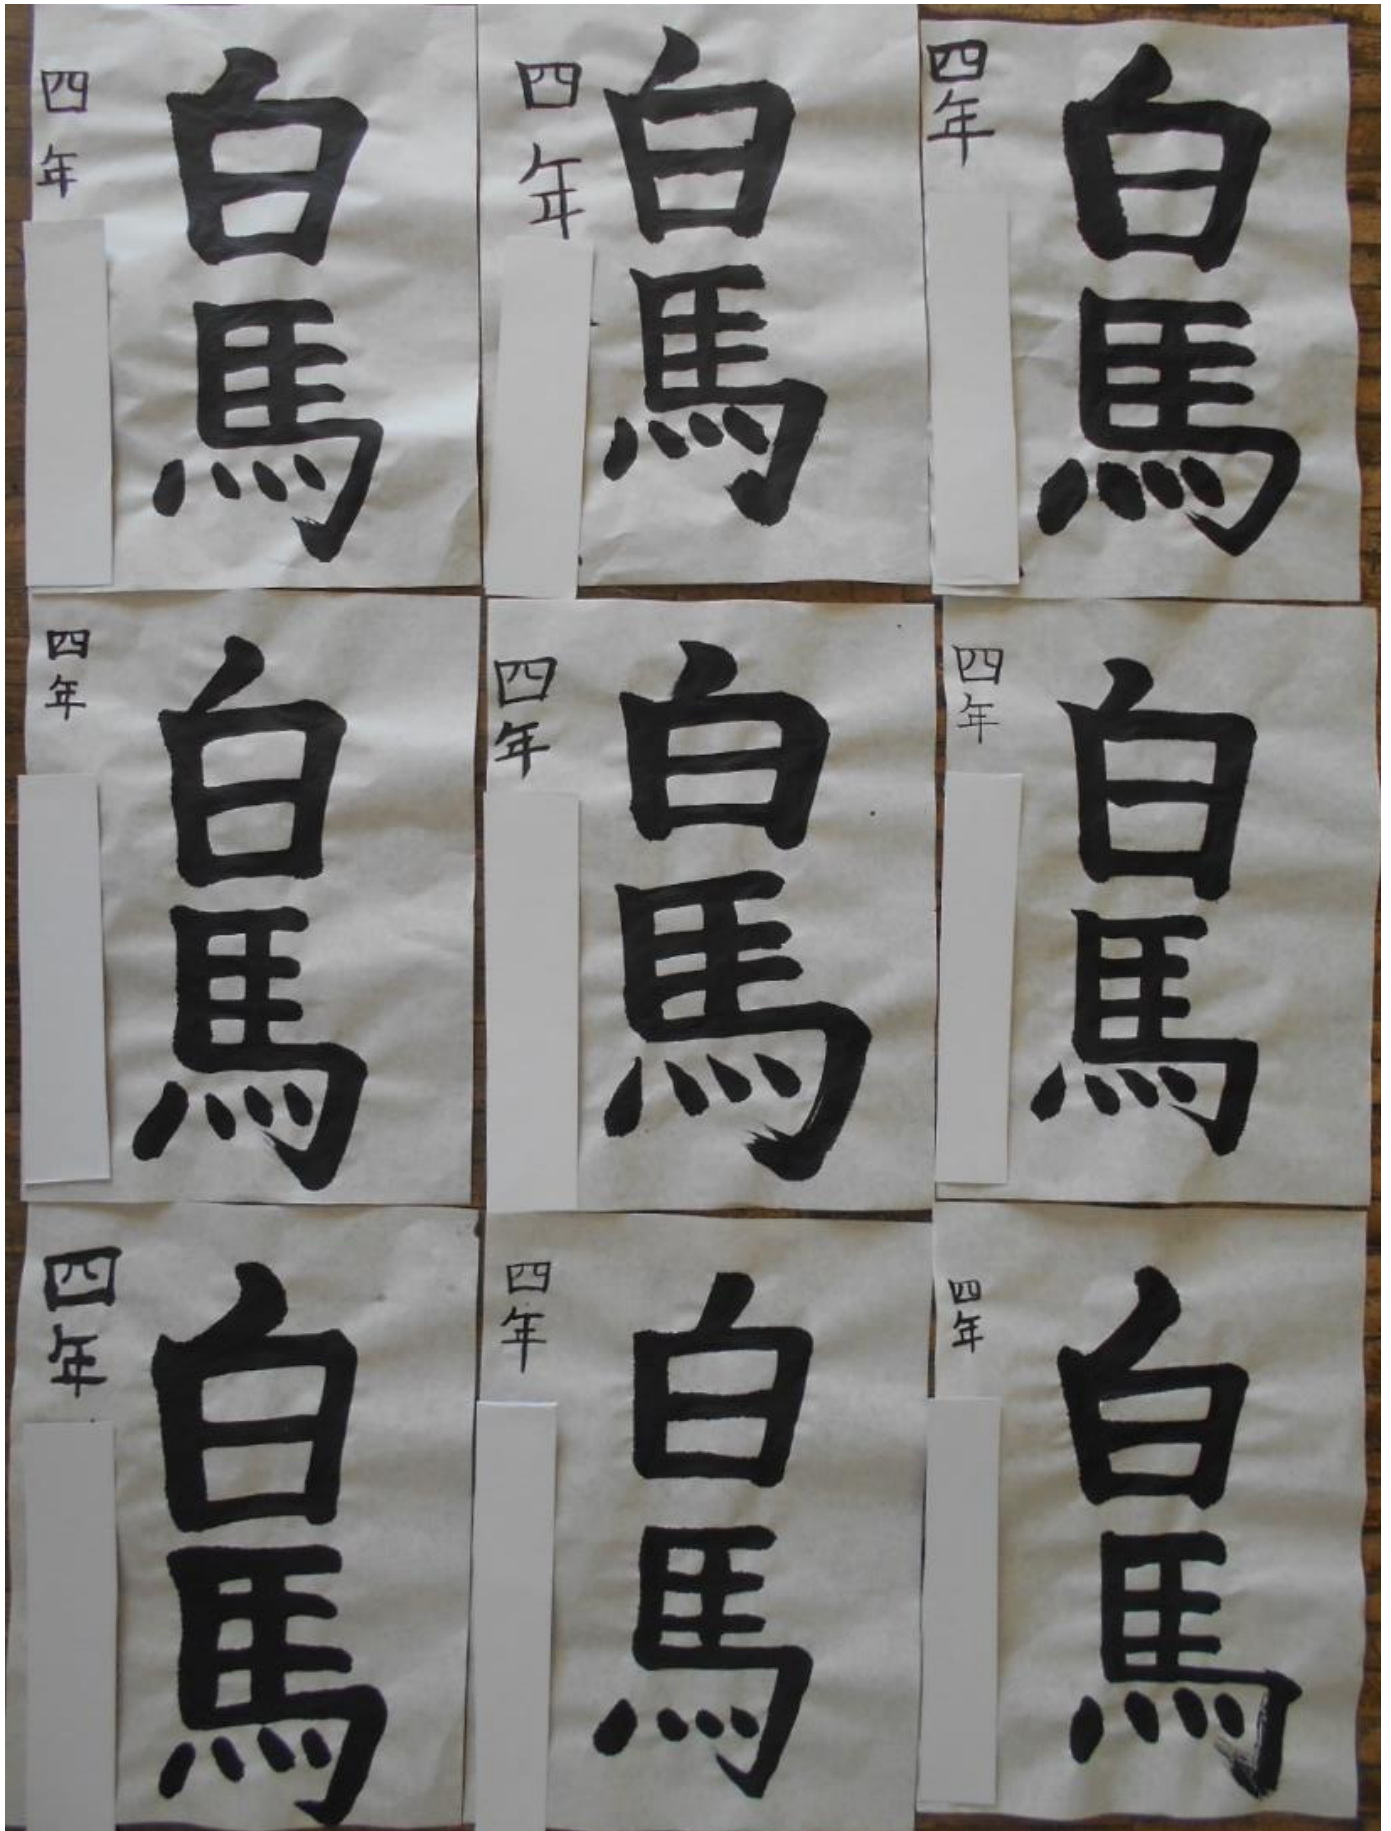 白馬
四年
白馬
四年
白馬
四年
白馬
四年
白馬
四年
白馬
四年
白馬
四年
白馬
四年
白馬
四年